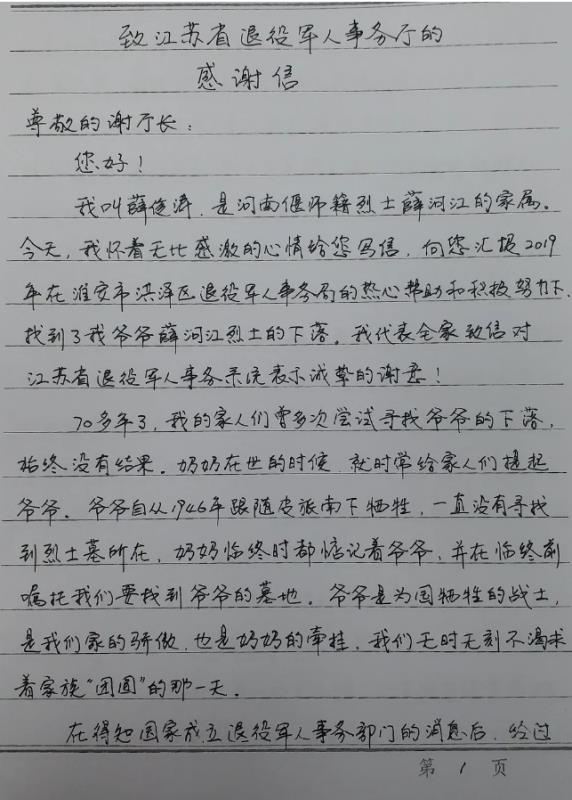 致江苏省退役军人事务厅的
感谢信
尊敬的谢厅长：
您好！
我叫薛俊涛，是河南偃师籍烈士薛河江的家属。
今天，我怀着无比感激的心情给您写信，向您汇报2019
年在淮安市洪泽区退役军人事务局的热心帮助和积极努力下，
找到了我爷爷薛河江烈士的下落。我代表全家致信对
江苏省退役军人事务系统表示诚挚的谢意！
70多年了，我的家人们曾多次尝试寻找爷爷的下落，
始终没有结果。奶奶在世的时候，就时常给家人们提起
爷爷。爷爷自从1946年跟随皮旅南下牺牲，一直没有寻找
到烈士墓所在，奶奶临终时都惦记着爷爷，并在临终前
嘱托我们要找到爷爷的墓地。爷爷是为国牺牲的战士，
是我们家的骄傲，也是奶奶的牵挂，我们无时无刻不渴求
着家族“团圆”的那一天。
在得知国家成立退役军人事务部门的消息后，经过
第 1 页